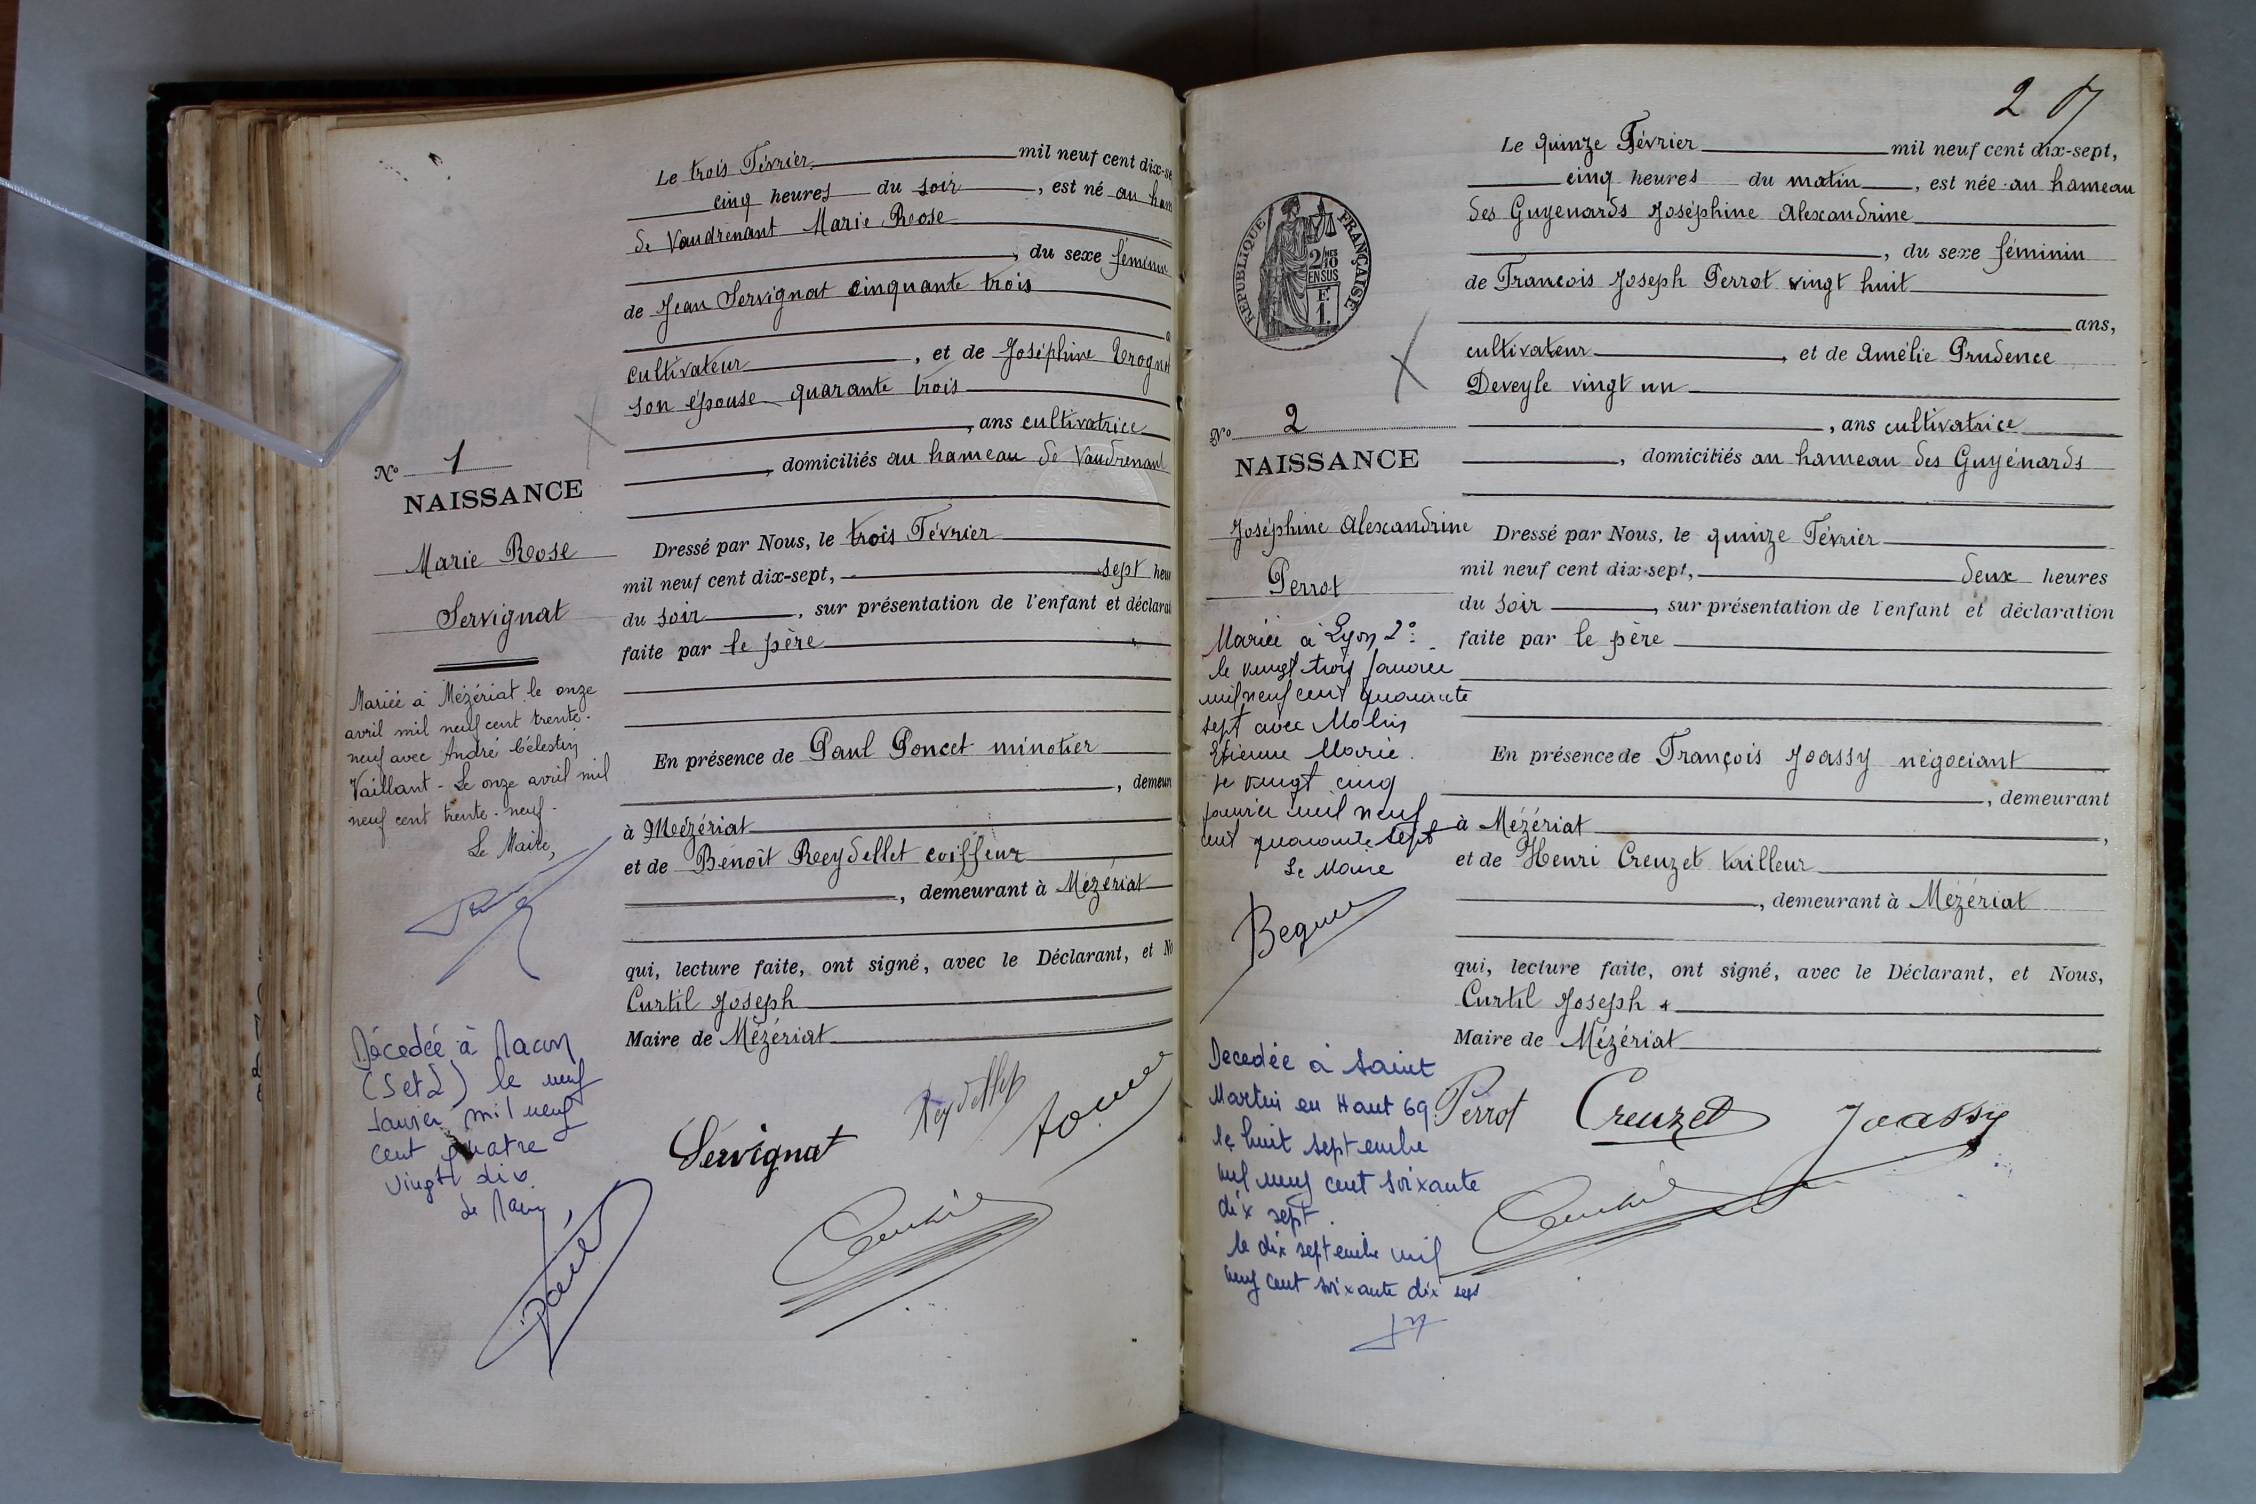 Le trois Février mil neuf cent dix-se
cinq heures du soir, est né au ham
de Vaudrenant Marie Rose
, du sexe féminin
de Jean Servignat cinquante trois
a
cultivateur, et de Joséphine
son épouse quarante trois
, ans cultivatrice
, domiciliés au hameau de Vaudrenant
No 1
NAISSANCE
Marie Rose
Servignat
Dressé par Nous, le trois Février
mil neuf cent dix-sept, sept heu
du soir, sur présentation de l'enfant et déclarat
faite par le père
En présence de Paul Poncet minotier
, demeur
à Mézériat
et de Benoît Reydellet coiffeur
, demeurant à Mézériat
qui, lecture faite, ont signé, avec le Déclarant, et No
Curtil Joseph
Maire de Mézériat
Mariée à Mézériat le onze
avril mil neuf cent trente-
neuf avec André Célestin
Vaillant - Le onze avril mil
neuf cent trente-neuf-
Le Maire,
Décedée à Macon
(S et L) le neuf
Janvier mil neuf
cent quatre
vingt dix
Le Maire,
Servignat
Reydellet
2
Le quinze Février mil neuf cent dix-sept,
cinq heures du matin, est née au hameau
des Guyenards Joséphine Alexandrine
, du sexe féminin
de Francois Joseph Perrot vingt huit
ans,
cultivateur, et de Amélie Prudence
Deveyle vingt un
, ans cultivatrice
, domiciliés au hameau des Guyénards
RÉPUBLIQUE FRANÇAISE
2/10
EN SUS
F.
1.
No 2
NAISSANCE
Joséphine Alexandrine
Perrot
Dressé par Nous, le quinze Février
mil neuf cent dix-sept, deux heures
du soir, sur présentation de l'enfant et déclaration
faite par le père
En présence de François Joassy négociant
, demeurant
à Mézériat,
et de Henri Creuzet tailleur
, demeurant à Mézériat
qui, lecture faite, ont signé, avec le Déclarant, et Nous,
Curtil Joseph
Maire de Mézériat
Mariée à Lyon 2e
le vingt trois Janvier
mil neuf cent quarante
sept avec Molin
Etienne Marie.
Le vingt cinq
janvier mil neuf
cent quarante sept
Le Maire
Decedée à Saint
Martin en Haut 69
le huit septembre
mil neuf cent soixante
dix sept.
le dix septembre mil
neuf cent soixante dix sept
Perrot Creuzet Joassy